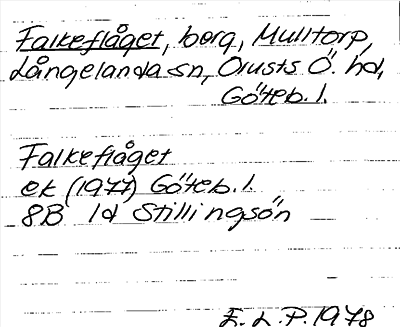 Falkeflåget, berg, Mulltorp,
Långelanda sn, Orusts Ö. hd,
Göteb. l.
Falkeflåget
ek (1977) Göteb. l.
8B 1d Stillingsön
E. L. P. 1978